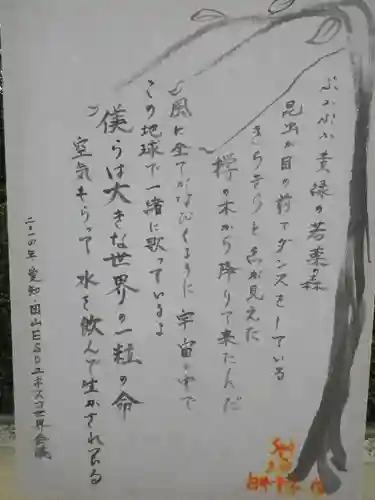 ぷかぷか黄緑の若葉の森
昆虫が目の前でダンスをしている
きらきらと糸が見えた
欅の木から降りて来たんだ
風に全てがなびくように宇宙の中で
この地球で一緒に歌っているよ
僕らは大きな世界の一粒の命
空気をもらって水を飲んで生かされている
二〇一四年愛知・岡山ESDユネスコ世界会議